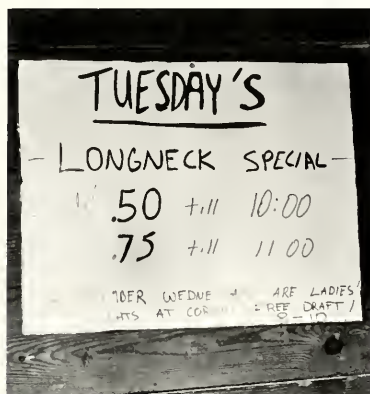 TUESDAY'S
- LONGNECK SPECIAL -
.50 till 10:00
.75 till 11 00
ARE LADIES'
AT FREE DRAFT!
8-10